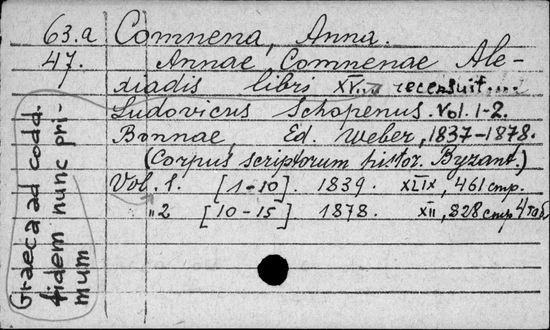 63.a Comnena, Anna.
47. Annae Comnenae Ale-
xiadis libri XV... recensuit....
Ludovicus Schopenus. Vol. 1-2.
Bonnae, Ed. Weber, 1837-1878.
(Corpus scriptorum histor. Byzant.)
Vol. 1. [1-10]. 1839. XLIX, 461 стр.
" 2 [10-15] 1878. XII, 828 стр 4 таб
Graeca ad codd.
fidem nunc pri-
mum